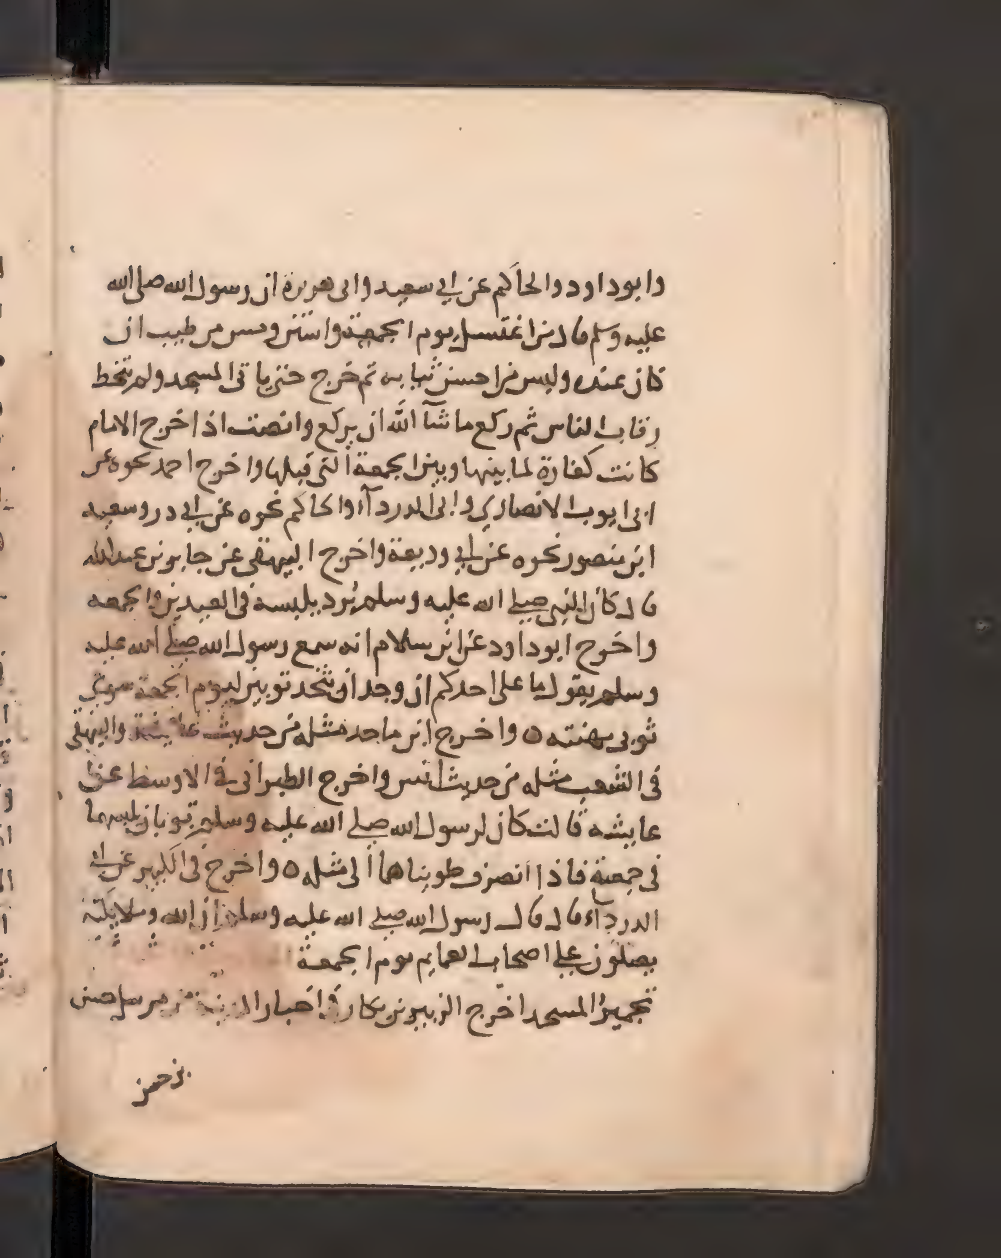 وابوداود والحاكم عن ابي سعيد وابي هريرة ان رسول الله صلى الله
عليه وسلم قال من اغتسل يوم الجمعة واستن ومس من طيب ان
كان عنده ولبس من احسن ثيابه ثم خرج حتى ياتي المسجد ولم يتخط
رقاب الناس ثم ركع ما شآ الله ان يركع وانصت اذا خرج الامام
كانت كفارة لما بينها وبين الجمعة التي قبلها واخرج احمد نحوه عن
ابي ايوب الانصاري وابي الدردآء والحاكم نحوه عن ابي ذر وسعيد
ابن منصور نحوه عن ابي وديعة واخرج البيهقي عن جابر بن عبدالله
قال كان للنبي صلى الله عليه وسلم برد يلبسه في العيدين والجمعه
واخرج ابوداود عن ابن سلام انه سمع رسول الله صلى الله عليه
وسلم يقول ما على احدكم ان وجد ان يتخذ ثوبين ليوم الجمعة سوى
ثوبى مهنته ٥ واخرج ابن ماجه مثله من حديث عايشة والبيهقي
في الشعب مثله من حديث انس واخرج الطبراني في الاوسط عن
عايشه قالت كان لرسول الله صلى الله عليه وسلم ثوبان يلبسهما
في جمعة فاذا انصرف طويناهما الى مثله ٥ واخرج في الكبير عن ابي
الدردآء قال قال رسول الله صلى الله عليه وسلم ان الله وملايكته
يصلون على اصحاب العمايم يوم الجمعة
تجمير المسجد اخرج الزبير بن بكار في اخبار المدينة من مرسل حسن
بن حسن